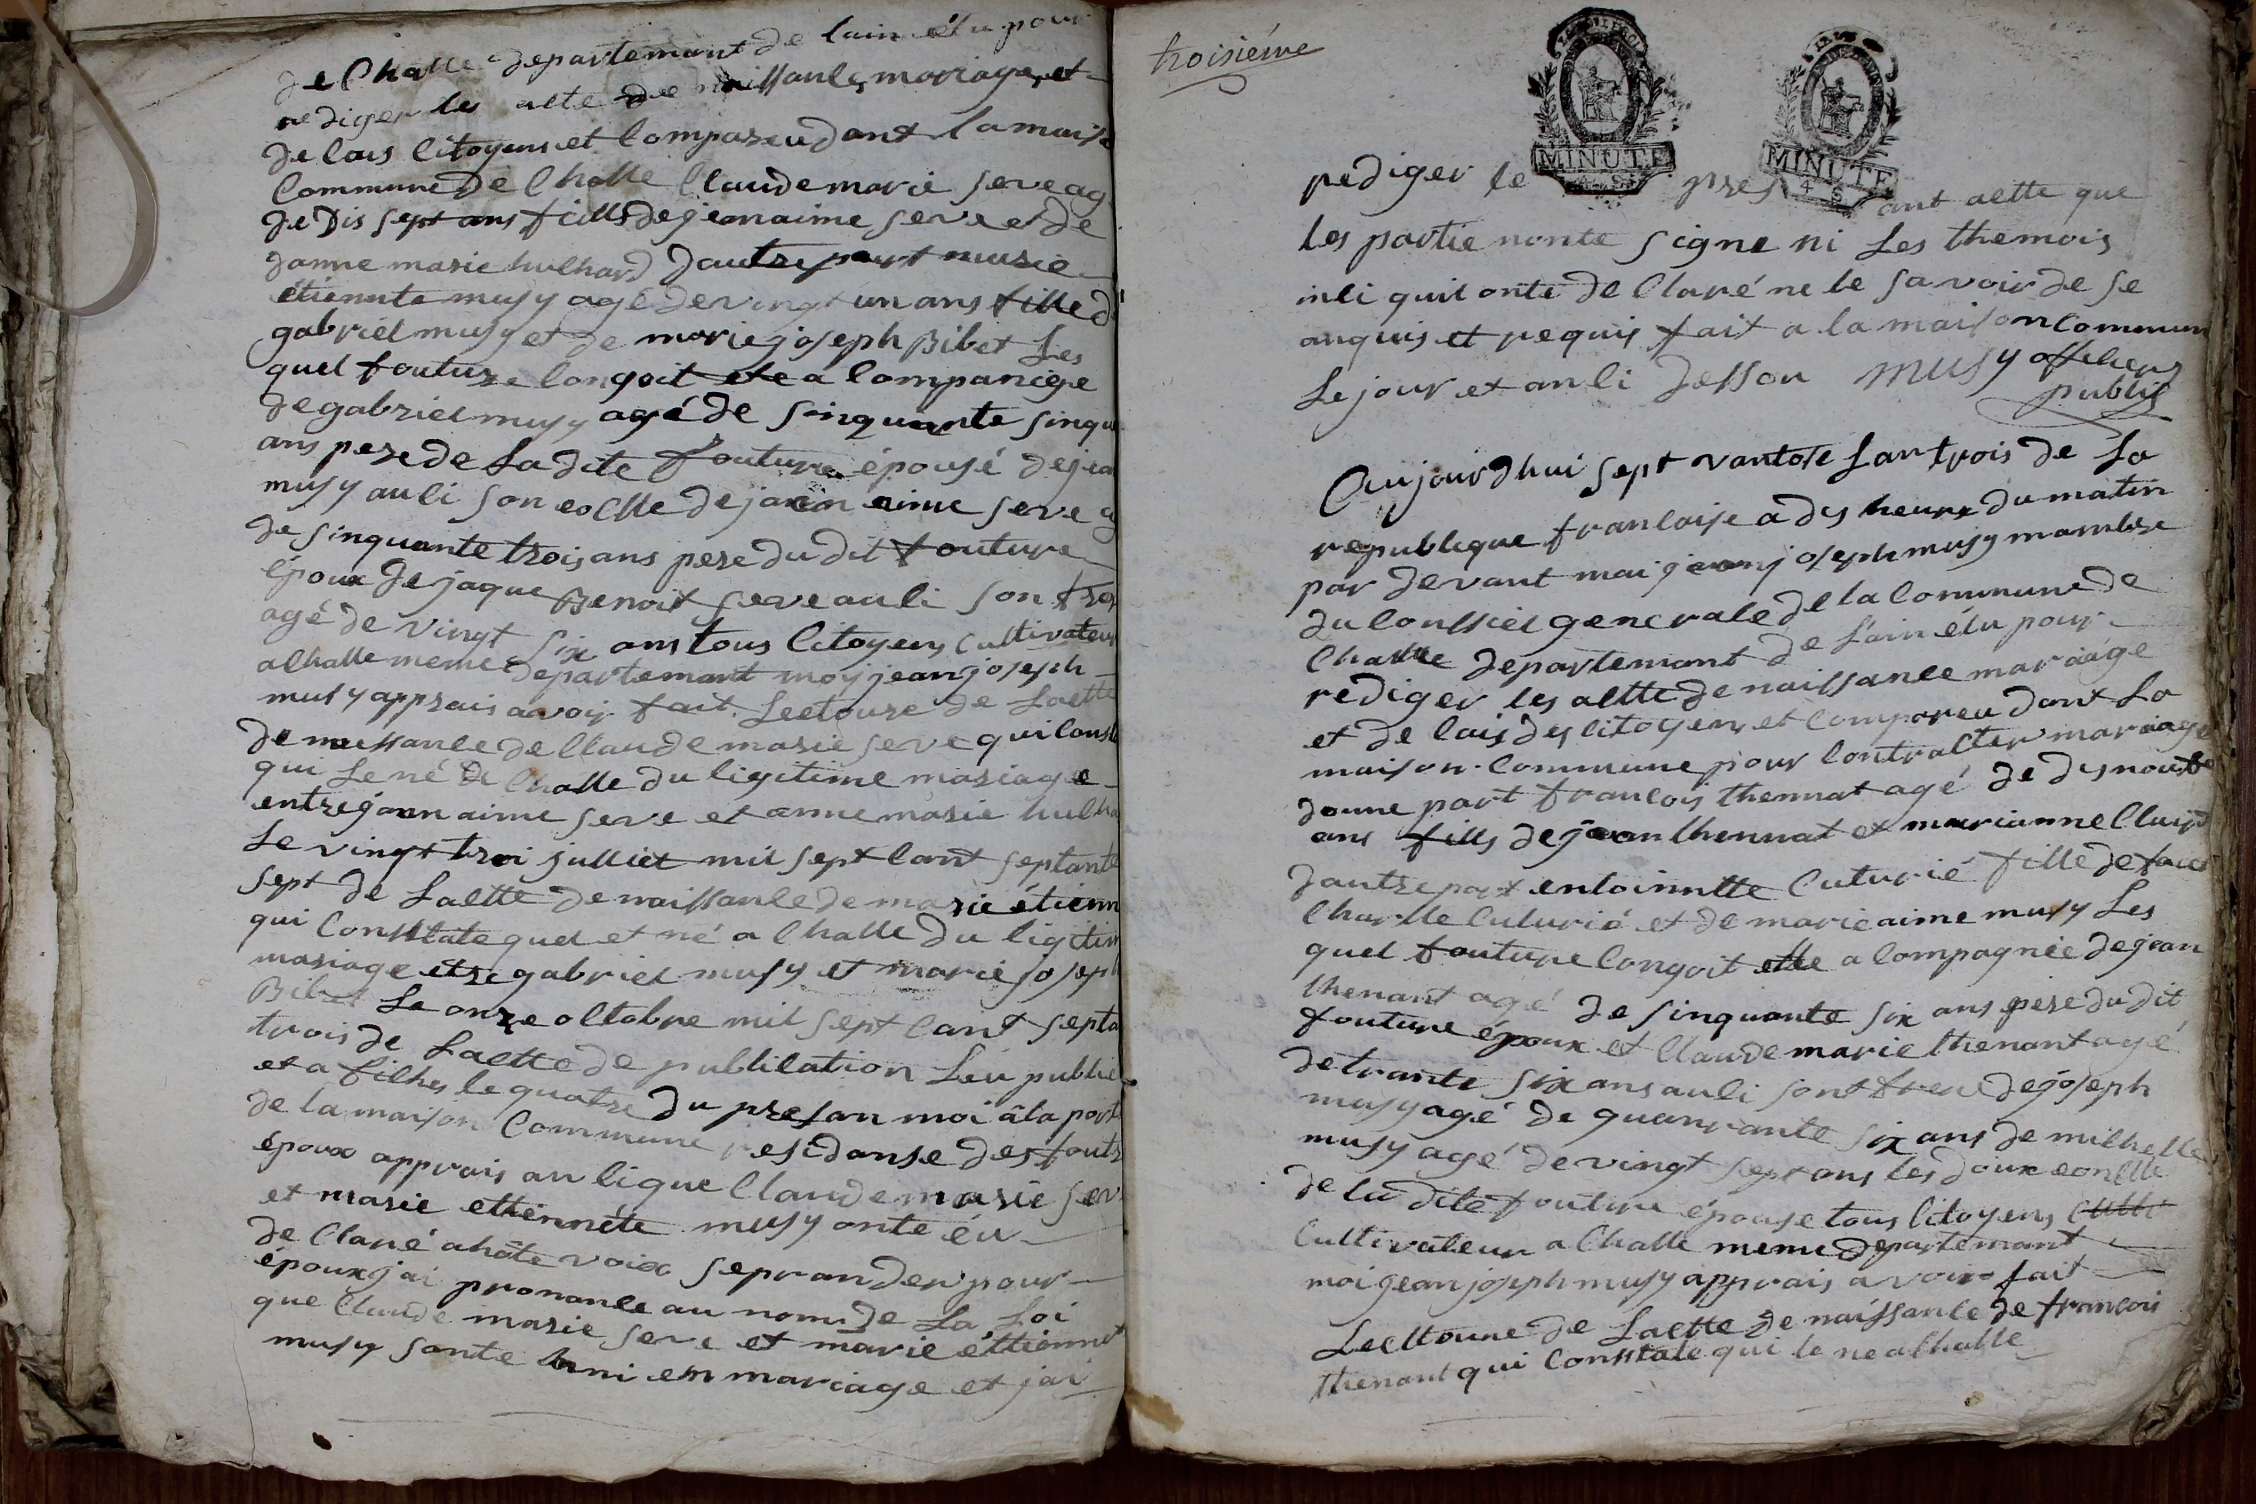 de Challe departemant de lain élu pour
rediger les acte de naissance, mariage, et
de cais citoyens et comparu dant la maiso
Commune de Challe Claude marie seve ag
de Dis sept ans fills de jeanaime seve et de
danne marie huchard dautre part marie
étiennte musy agé de vingt un ans fille d
gabriel musy et de marie joseph Bibet Les
quel fouture congoit ete a compancge
de gabriel musy agé de sinquante sinqu
ans pere de La dite fouture épousé de jea
musy auci son eoclle de jaen aime seve a
de sinquante trois ans pere du dit fouture
époux de jaque Benoit seve auci son frer
agé de vingt six ans tous citoyens cultivateur
a challe meme departemant moy jean joseph
musy apprais avoir fait Lectoure de Lactte
de naissance de Claude marie seve qui const
qui Le né de Challe du ligitime mariage
entre jaen aime seve et anne marie hucha
Le vingt troi julliet mil sept cant septante
sept de Lactte de naissance de marie étienn
qui Consttate quel et né a Challe du ligitim
mariage etre gabriel musy et marie joseph
Bibet Le onze octobre mil sept cant septa
trois de Lactte de publication Leu publie
et a fiches le quatre du presan moi â la port
de la maison Commune residanse des foutr
époux apprais an ci que Claude marie sev
et marie ettiennéte musy onte éu
de Claré a hôte voix se prander pour
époux j'ai pronance au nom de La Loi
que Claude marie seve et marie éttiennet
musy sonte uni en mariage et j'ai
troisième
MINUTE
4 S
MINUTE
4 S
rediger le pres ant actte que
les partie nonte signe ni Les themois
inci quil onte de Claré ne le savoir de se
anquis et requis fait a la maison commun
Le jour et an ci dessou musy officiers
public
Aujourdhui sept vantose Lan trois de La
republique francaise a dis heure du matin
par devant mai jean joseph musy mambre
du conssiel generale de la Commune de
Challe departemant de Lain élu pour
rediger les actte de naissance maraage
et de cais des citoyens et compareu dant La
maison commune pour contracter maraage
danne part francois thennat agé de disnouf
ans fills de jean thennat et marianne Cluird
dautre part entoinntte Cuturié fille de
Charlle Cuturié et de marie aime musy Les
quel fouture congoit ette a compagnée de jean
thenant agé de sinquante six ans pere du dit
fouture époux et Claude marie thenant agé
de trante six ans auci sont frere de joseph
musy agé de quarante six ans de michelle
musy agé de vingt sept ans les doux eonclle
de la dite fouture épouse tous citoyens culti
Cultivateur a Challe meme departemant
moi jean joseph musy apprais avoir fait
Lecltoure de Lactte de naissance de francois
thenant qui Consttate qui le ne a challe